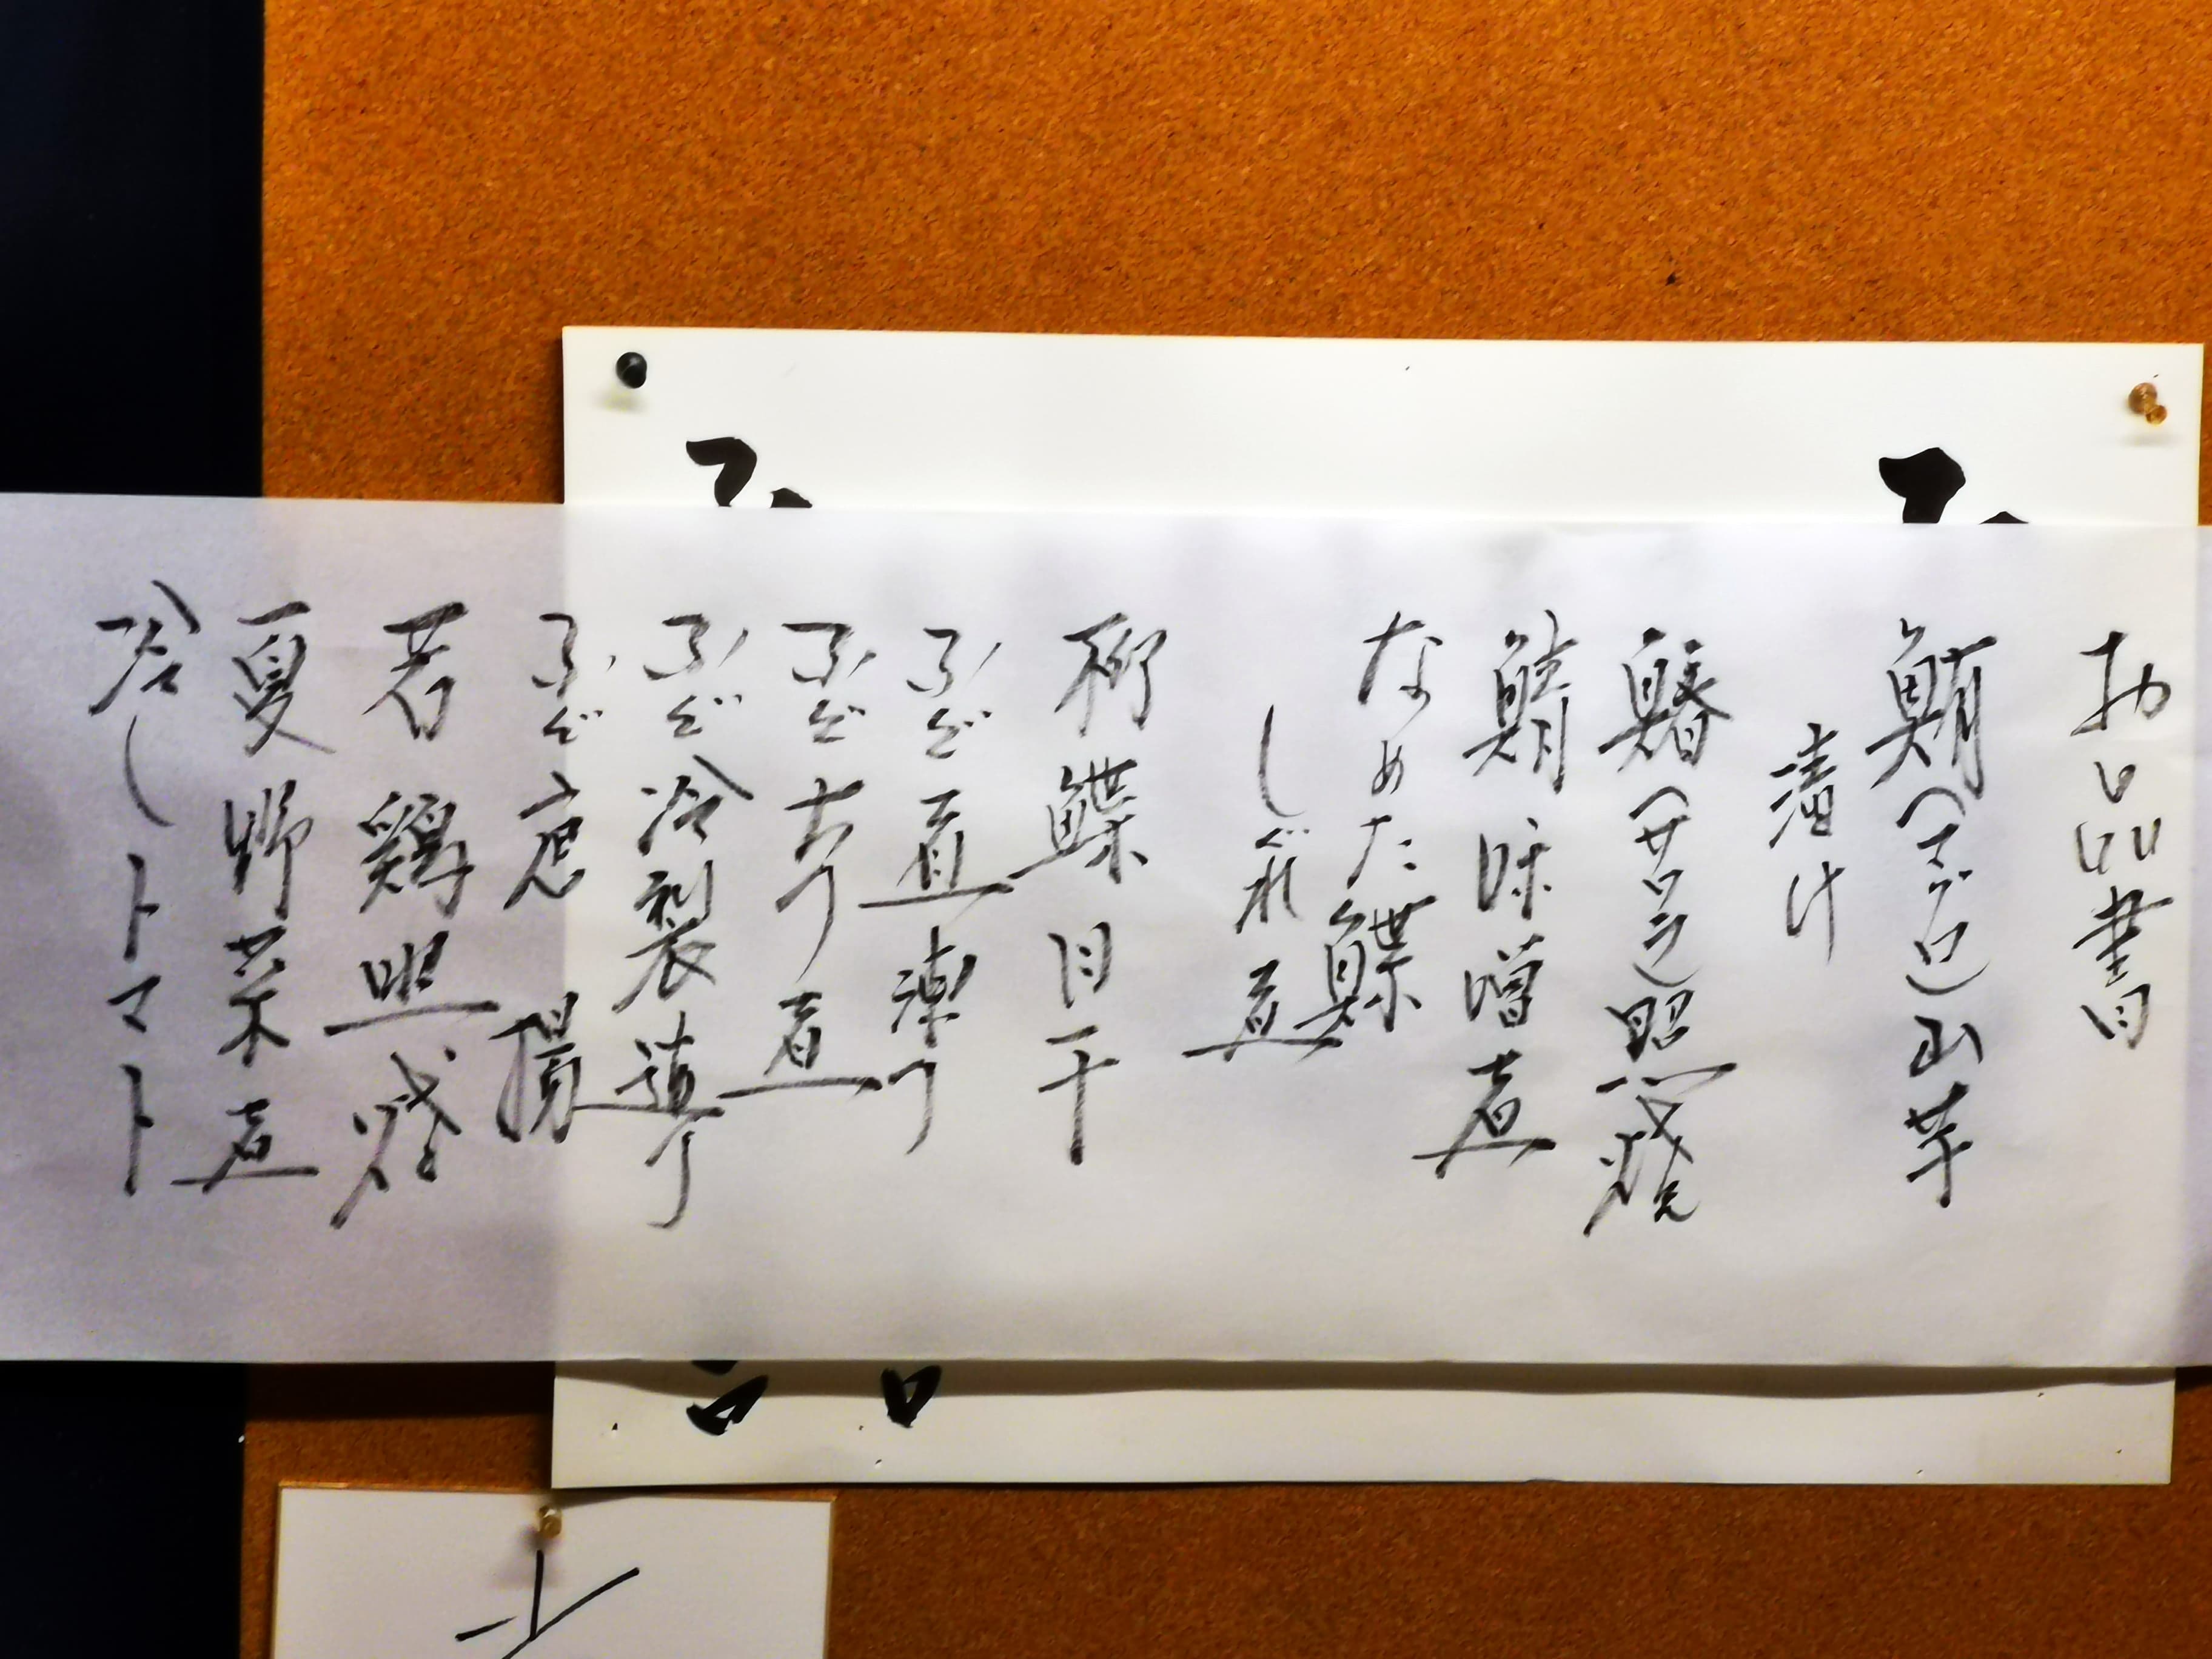 お品書
鮪(マグロ)山芋
漬け
鰆(サワラ)照焼
鯖味噌煮
なめた鰈
しぐれ煮
柳鰈日干
ふぐ煮凍り
ふぐあら煮
ふぐ冷製造り
ふぐ唐揚
若鶏照焼
夏野菜煮
冷しトマト